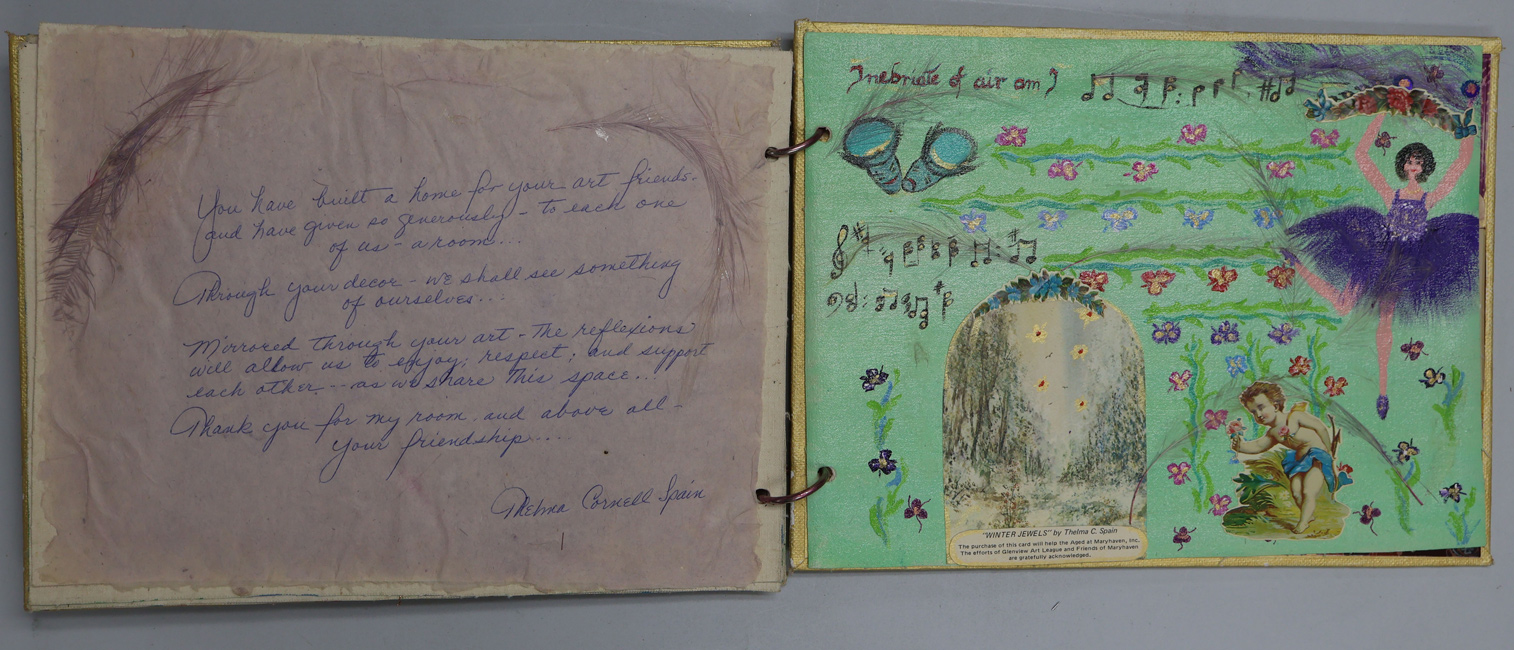 You have built a home for your art friends.
and have given so generously - to each one
of us - a room...
Through your decor - we shall see something
of ourselves...
Mirrored through your art - the reflexions
will allow us to enjoy; respect; and support
each other -- as we share this space...
Thank you for my room and above all -
your friendship....
Thelma Cornell Spain
Inebriate of air am I
"WINTER JEWELS" by Thelma C. Spain
The purchase of this card will help the Aged at Maryhaven, Inc.
The efforts of Glenview Art League and Friends of Maryhaven
are gratefully acknowledged.